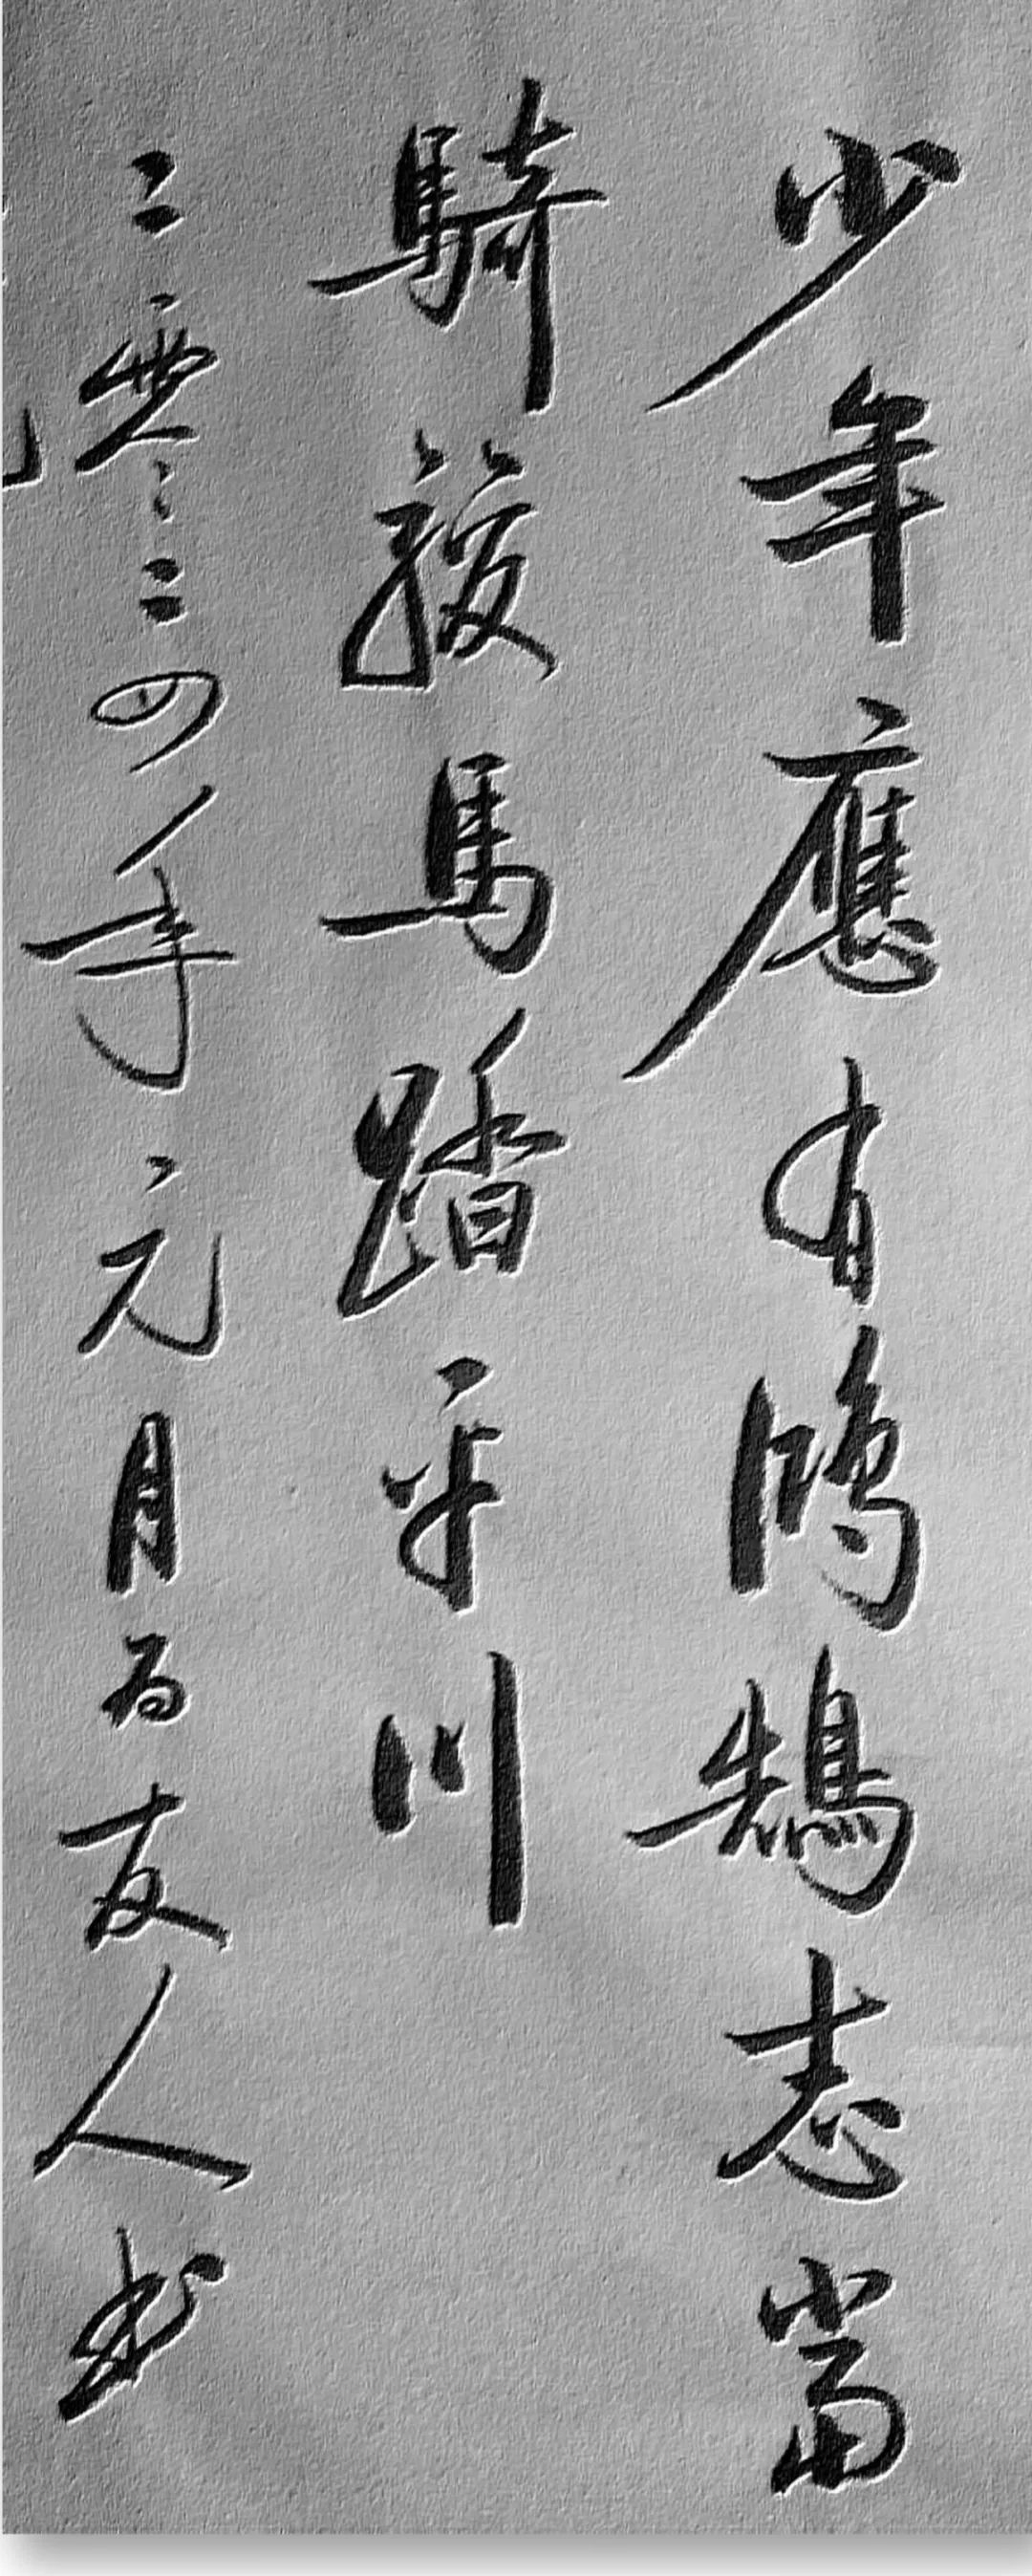 少年應有鴻鵠志當
騎駿馬踏平川
二零二四年元月为友人书